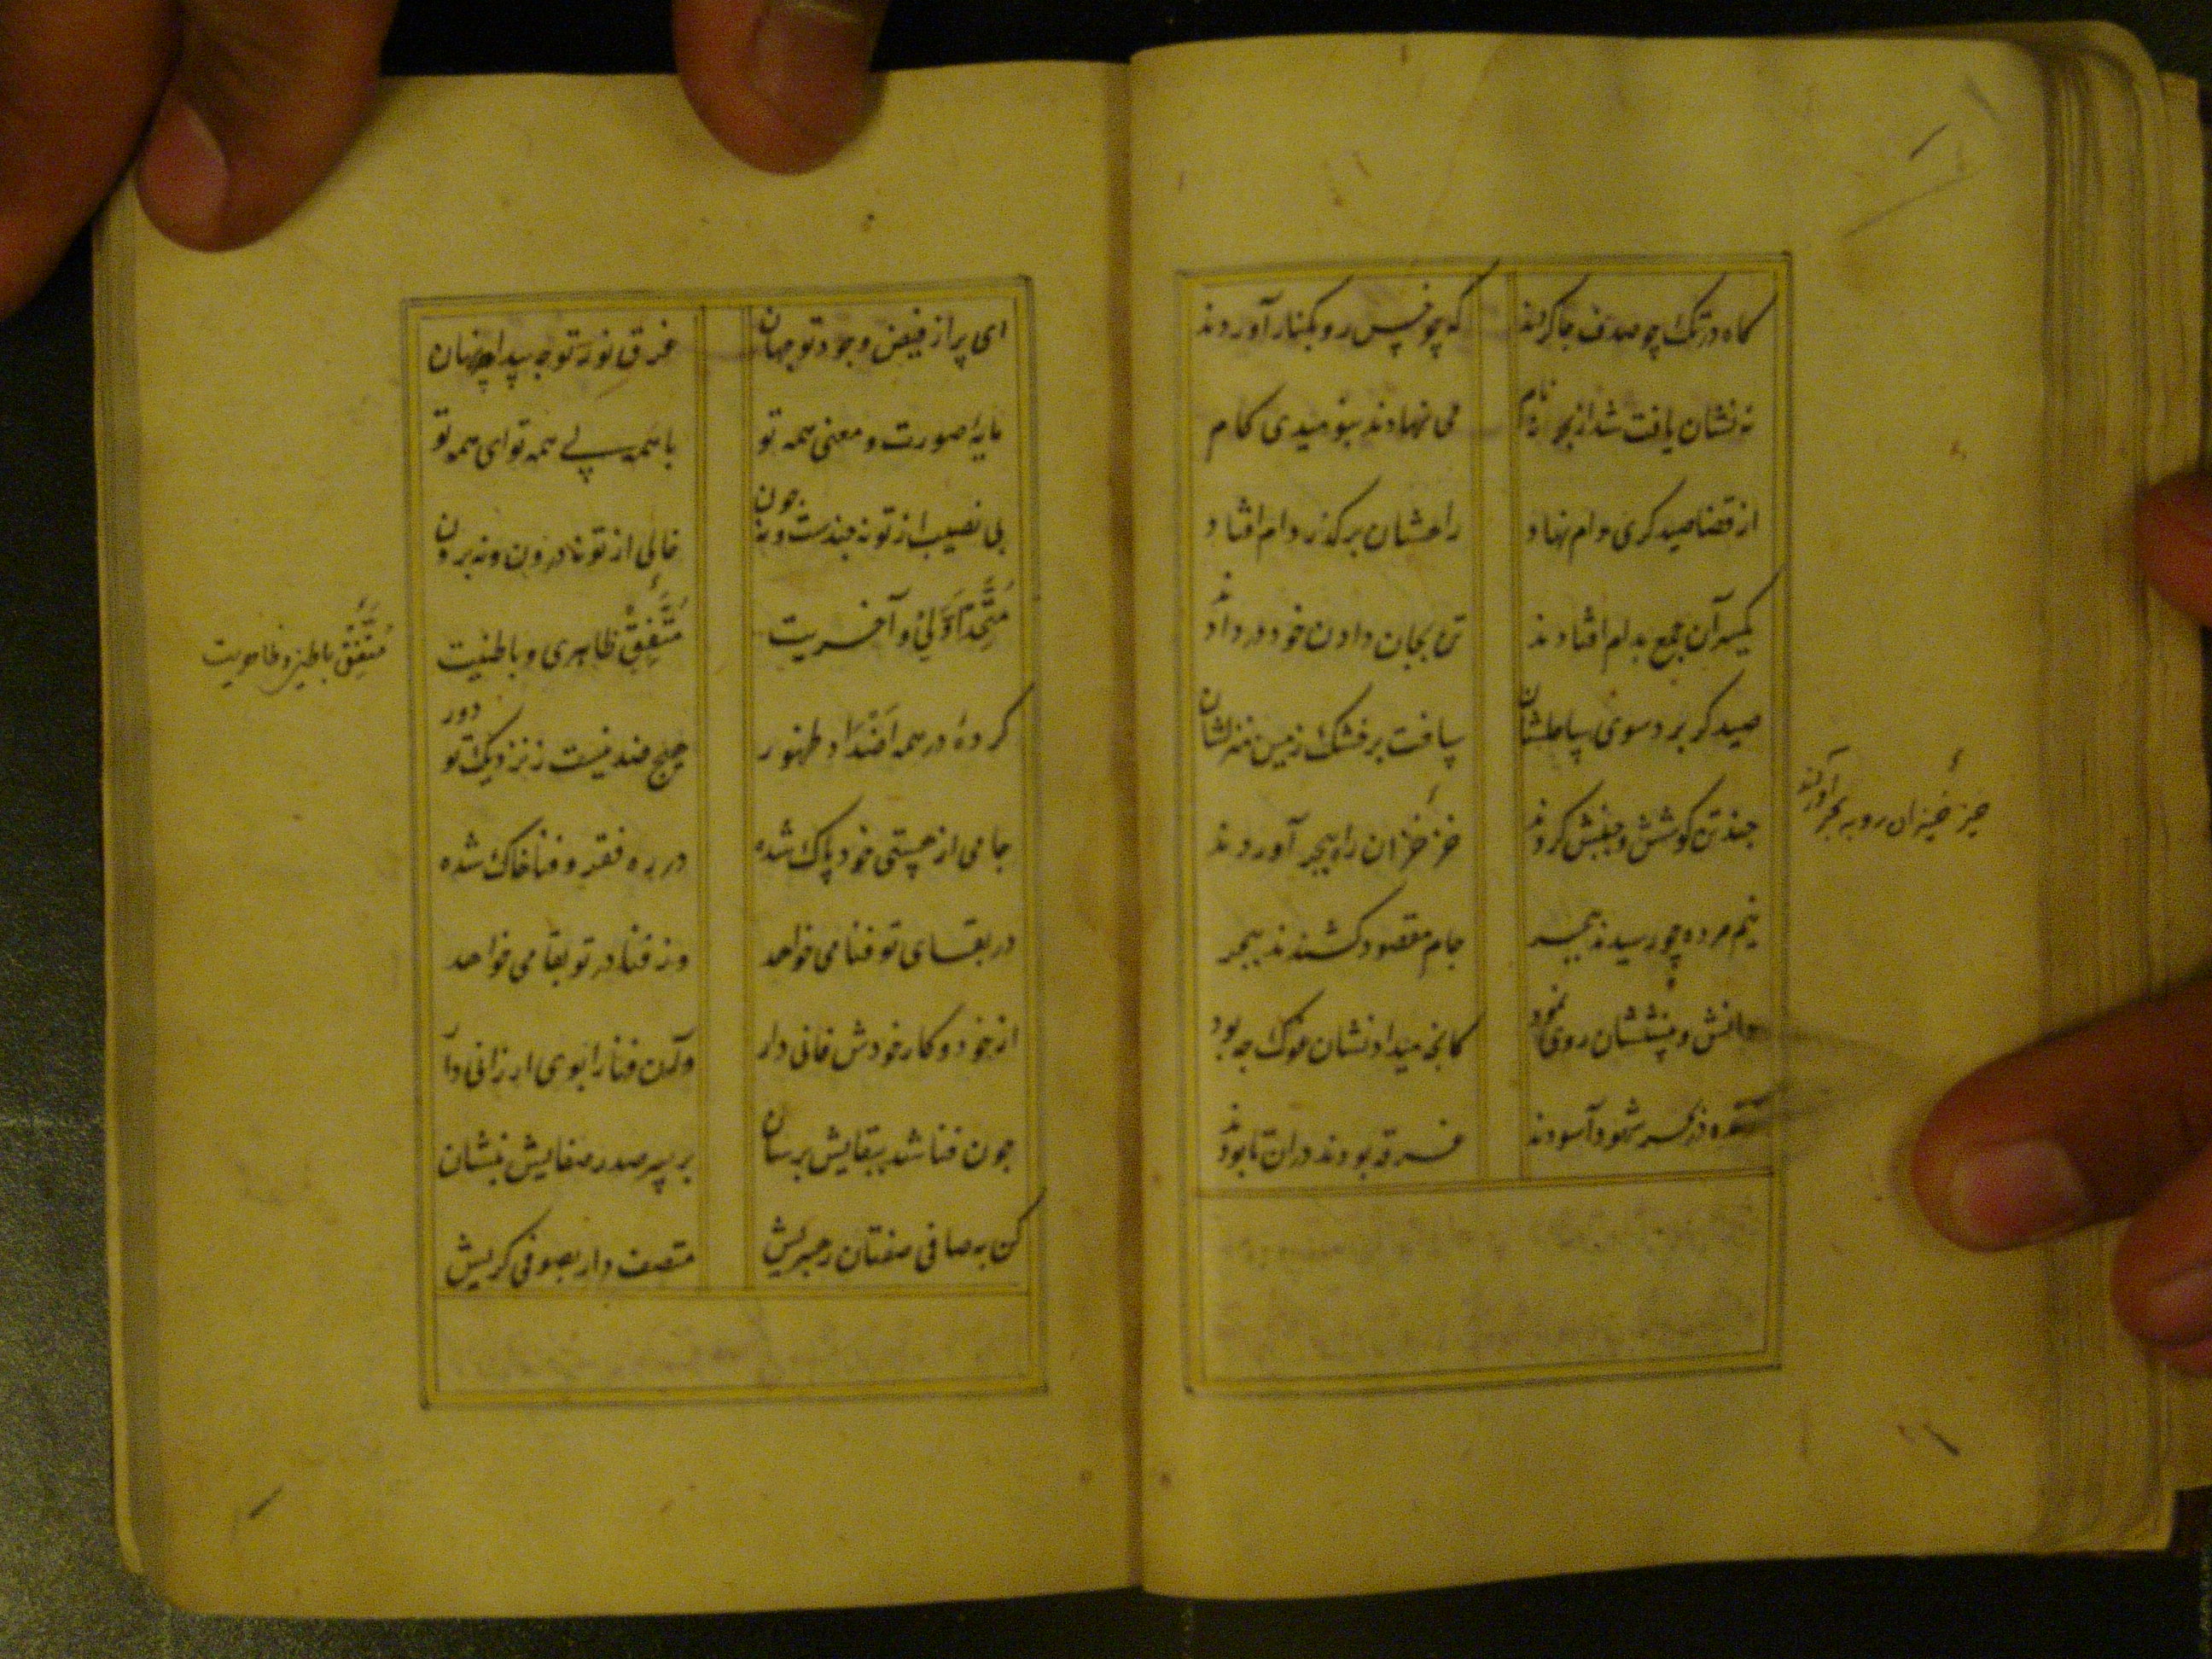 گاه در تک چو صدف جا کردند
که چو خس رو بکنار آوردند
نه نشان یافت شد از بحر نه نام
می نهادند بنومیدی کام
از قضا صیدگری دام نهاد
راهشان بر گذر دام افتاد
یکسر آن جمع بدام افتادند
تن بجان دادن خود در دادند
صیدگر برد سوی ساحلشان
ساخت بر خشک زمین منزلشان
چند تن کوشش و جنبش کردند
خز خزان راه ببحر آوردند
خیز خیزان رو به بحر آوردند
نیم مرده چو رسیدند ببحر
جام مقصود کشیدند ببحر
دانش و بینششان روی نمود
کانچه میداد نشان غوک چه بود
زنده در بحر شهود آسودند
غرقه بودند در آن تا بودند
ای پر از فیض وجود تو جهان
غرق نور تو چه پیدا چه نهان
مایه صورت و معنی همه تو
با همه بی همه تو ای همه تو
بی نصیب از تو نه چندست و نه چون
خالی از تو نه درون و نه برون
مُتَّحِد اَوَّلی و آخریت
مُتَّفِق ظاهری و باطنیت
مُتَّفِق باطنی و ظاهریت
کرده در همه اضداد ظهور
هیچ ضد نیست ز نزدیک تو دور
جامی از هستی خود پاک شده
در ره فقر و فنا خاک شده
در بقای تو فنا می خواهد
وز فنا در تو بقا می خواهد
از خود و کار خودش فانی دار
وآن فنا را بوی ارزانی دار
چون فنا شد ببقایش برسان
بر سر صدر صفایش بنشان
کن به صافی صفتان رهبریش
متصف دار بصوفی گریش